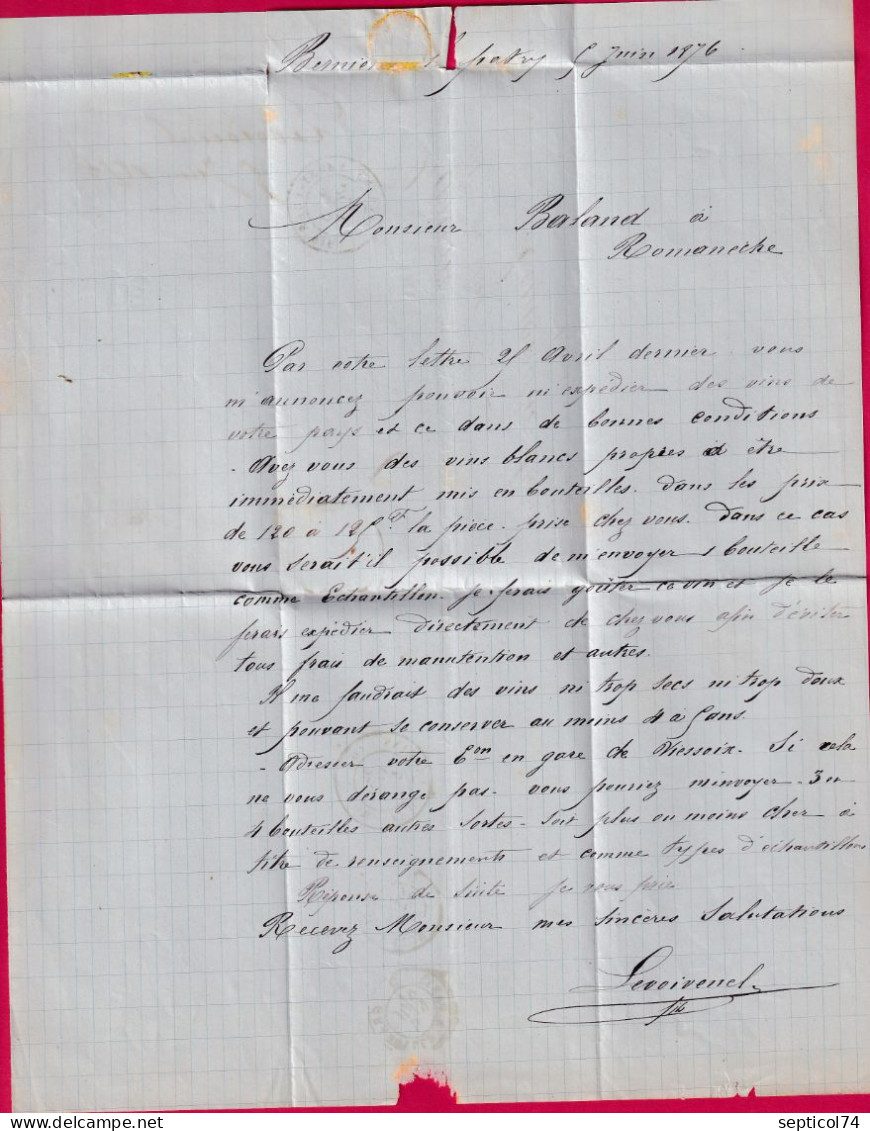 Bernières le patry 5 Juin 1876
Monsieur Baland à
Romanèche
Par votre lettre 25 Avril dernier vous
m'annoncez pouvoir m'expédier des vins de
votre pays et ce dans de bonnes conditions
- Avez vous des vins blancs propres à être
immédiatement mis en bouteilles. dans les prix
de 120 à 125 f la pièce. prise chez vous. dans ce cas
vous serait'il possible de m'envoyer 1 bouteille
comme Echantillon. Je ferais goûter ce vin et je le
ferais expédier directement de chez vous afin d'éviter
tous frais de manutention et autres.
Il me faudrait des vins ni trop secs ni trop doux
et pouvant se conserver au moins 4 à 5 ans.
- Adresser votre Eon en gare de Viessoix. Si cela
ne vous dérange pas. vous pourriez m'envoyer 3 ou
4 bouteilles autres sortes - soit plus ou moins cher à
titre de renseignements et comme types d'échantillons
Réponse de suite je vous prie.
Recevez Monsieur mes sincères salutations
Levoivenel
septicol74